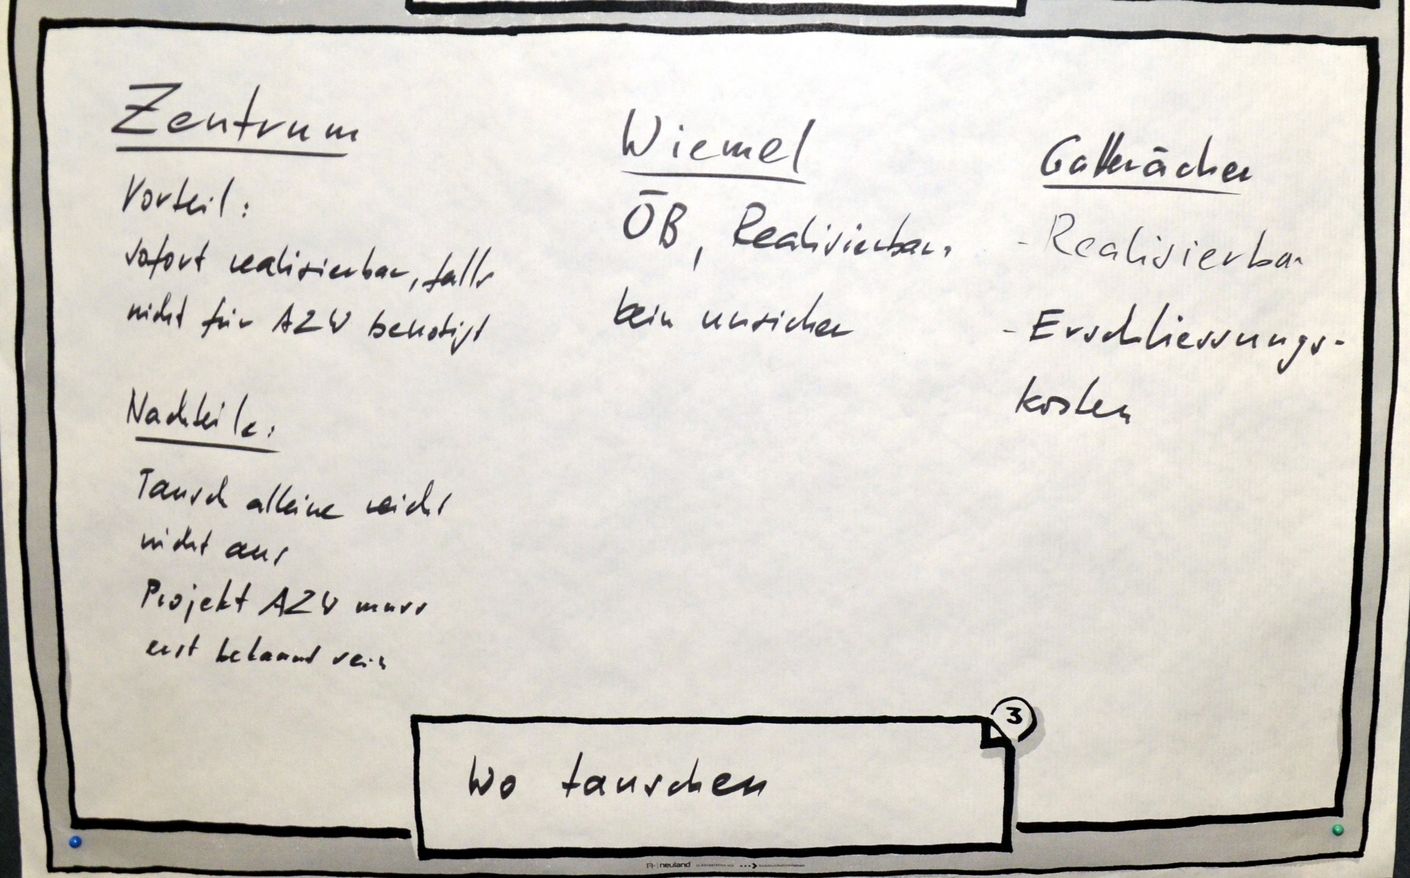 Zentrum
Vorteil:
sofort realisierbar, falls
nicht für AZW benötigt
Nachteile:
Tausch alleine reicht
nicht aus
Projekt AZW muss
erst bekannt sein
Wiemel
ÖB, Realisierbar.
kein unsicher
Galkerächer
- Realisierbar
- Erschliessungs-
kosten
3
Wo tauschen
neuland